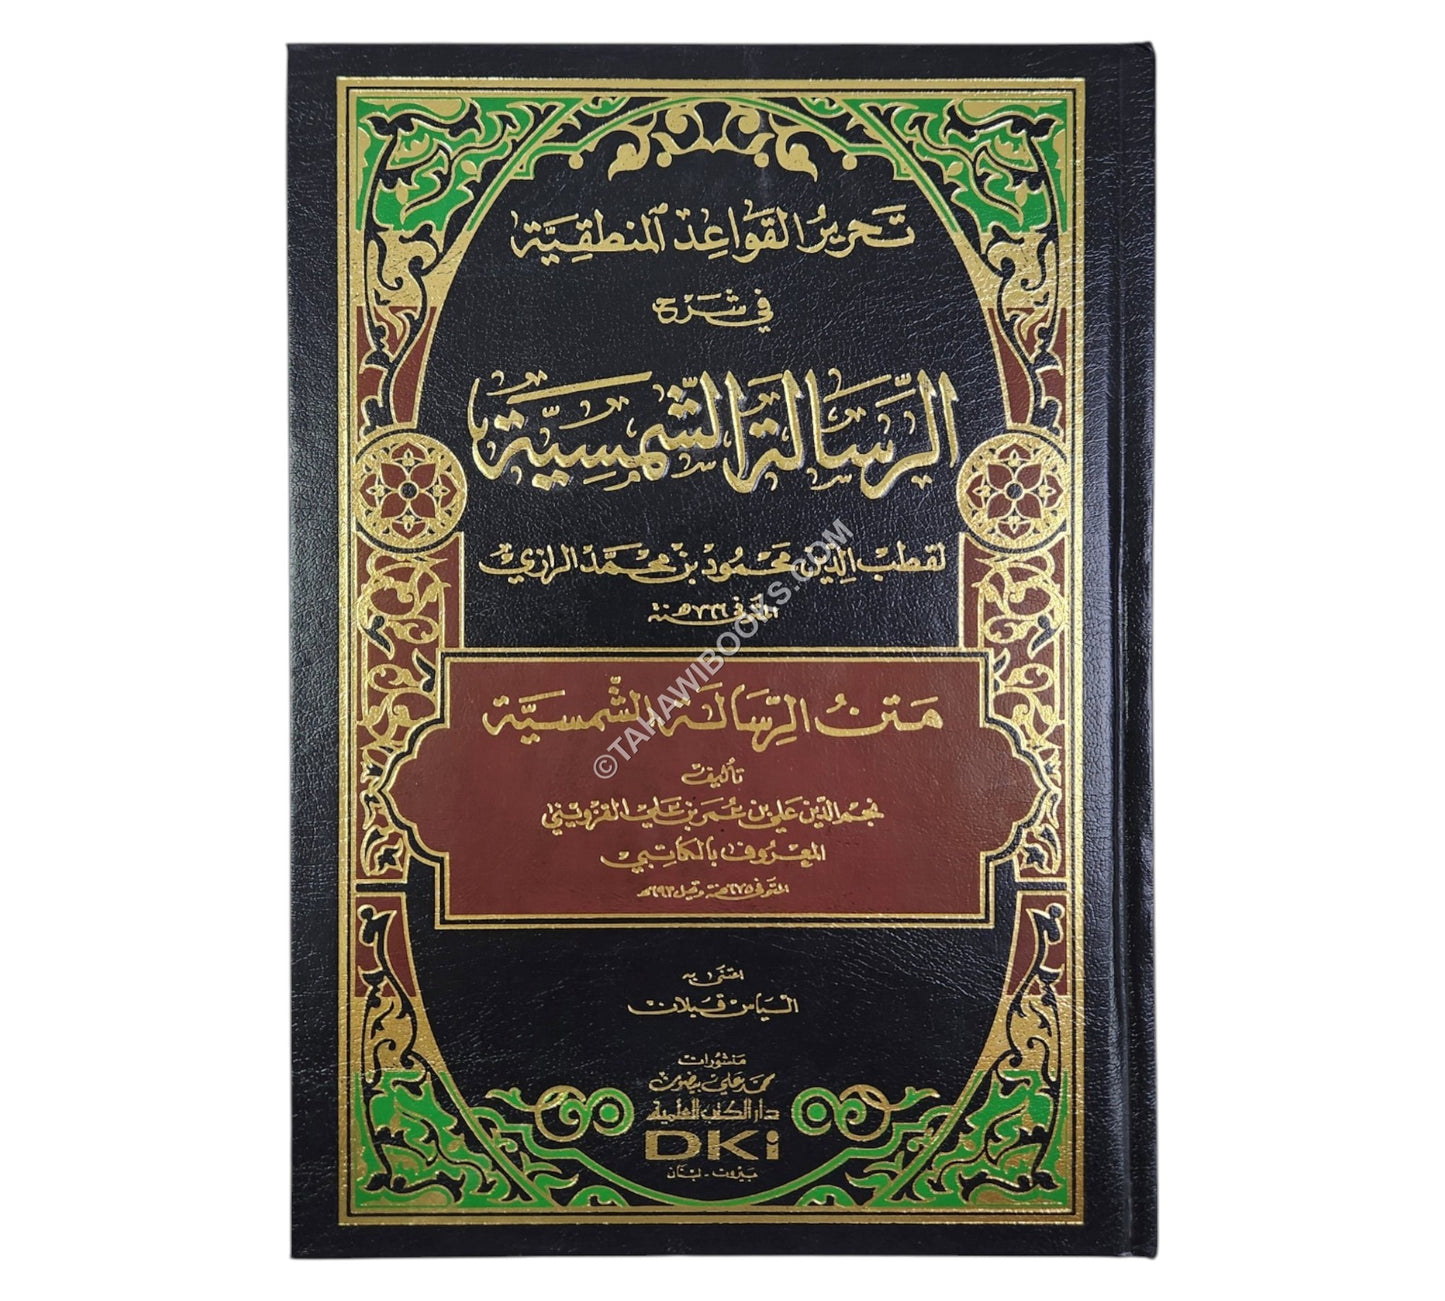 تَحريرُ القَواعِد المنطقِيَّة
في شَرح
الرِّسَالَة الشَّمسِيَّة
لقطب الدِّين محمُود بن محمَّد الرازي
المتوفى سنة ٧٦٦هـ
مَتنُ الرِّسَالَة الشَّمسيَّة
تأليف
نجم الدِّين عَلي بن عُمَر بن عَلي القزويني
المعرُوف بالكاتِبي
المتوفى ٦٧٥هـ وقيل ٦٩٣هـ
اعتنى به
الياس قبلان
منشورات
محمد علي بيضون
دار الكتب العلمية
DKi
بَيروت - لبنان
©TAHAWIBOOKS.COM